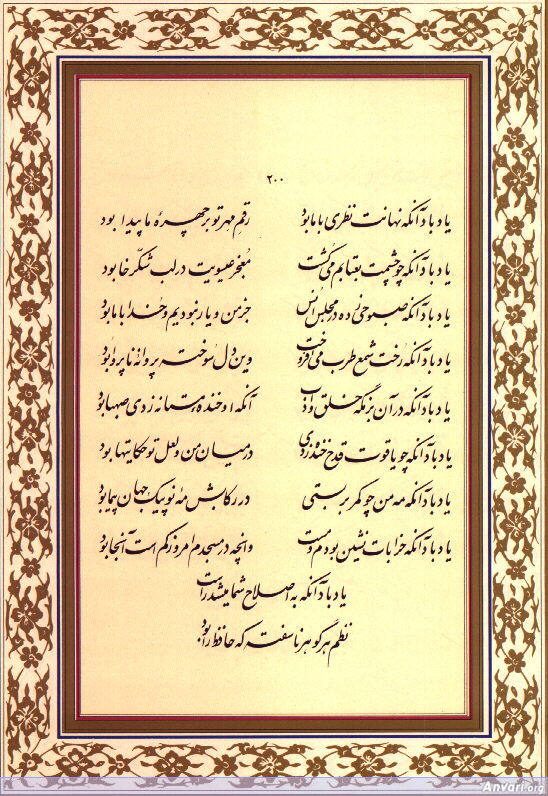 ۲۰۰
یاد باد آنکه نهانت نظری با ما بود رقم مهر تو بر چهرهٔ ما پیدا بود
یاد باد آنکه چو چشمت بعتابم می‌کشت معجز عیسویت در لب شکّرخا بود
یاد باد آنکه صبوحی زده در مجلس انس جز من و یار نبودیم و خدا با ما بود
یاد باد آنکه رخت شمع طرب می‌افروخت وین دل سوخته پروانهٔ ناپروا بود
یاد باد آنکه در آن بزمگه خلق و ادب آنکه او خندهٔ مستانه زدی صهبا بود
یاد باد آنکه چو یاقوت قدح خنده زدی در میان من و لعل تو حکایتها بود
یاد باد آنکه مه من چو کمر بربستی در رکابش مه نو پیک جهان پیما بود
یاد باد آنکه خرابات نشین بودم و مست وانچه در مسجدم امروز کم است آنجا بود
یاد باد آنکه به اصلاح شما میشد راست
نظم هر گوهر ناسفته که حافظ را بود
Anvari.org